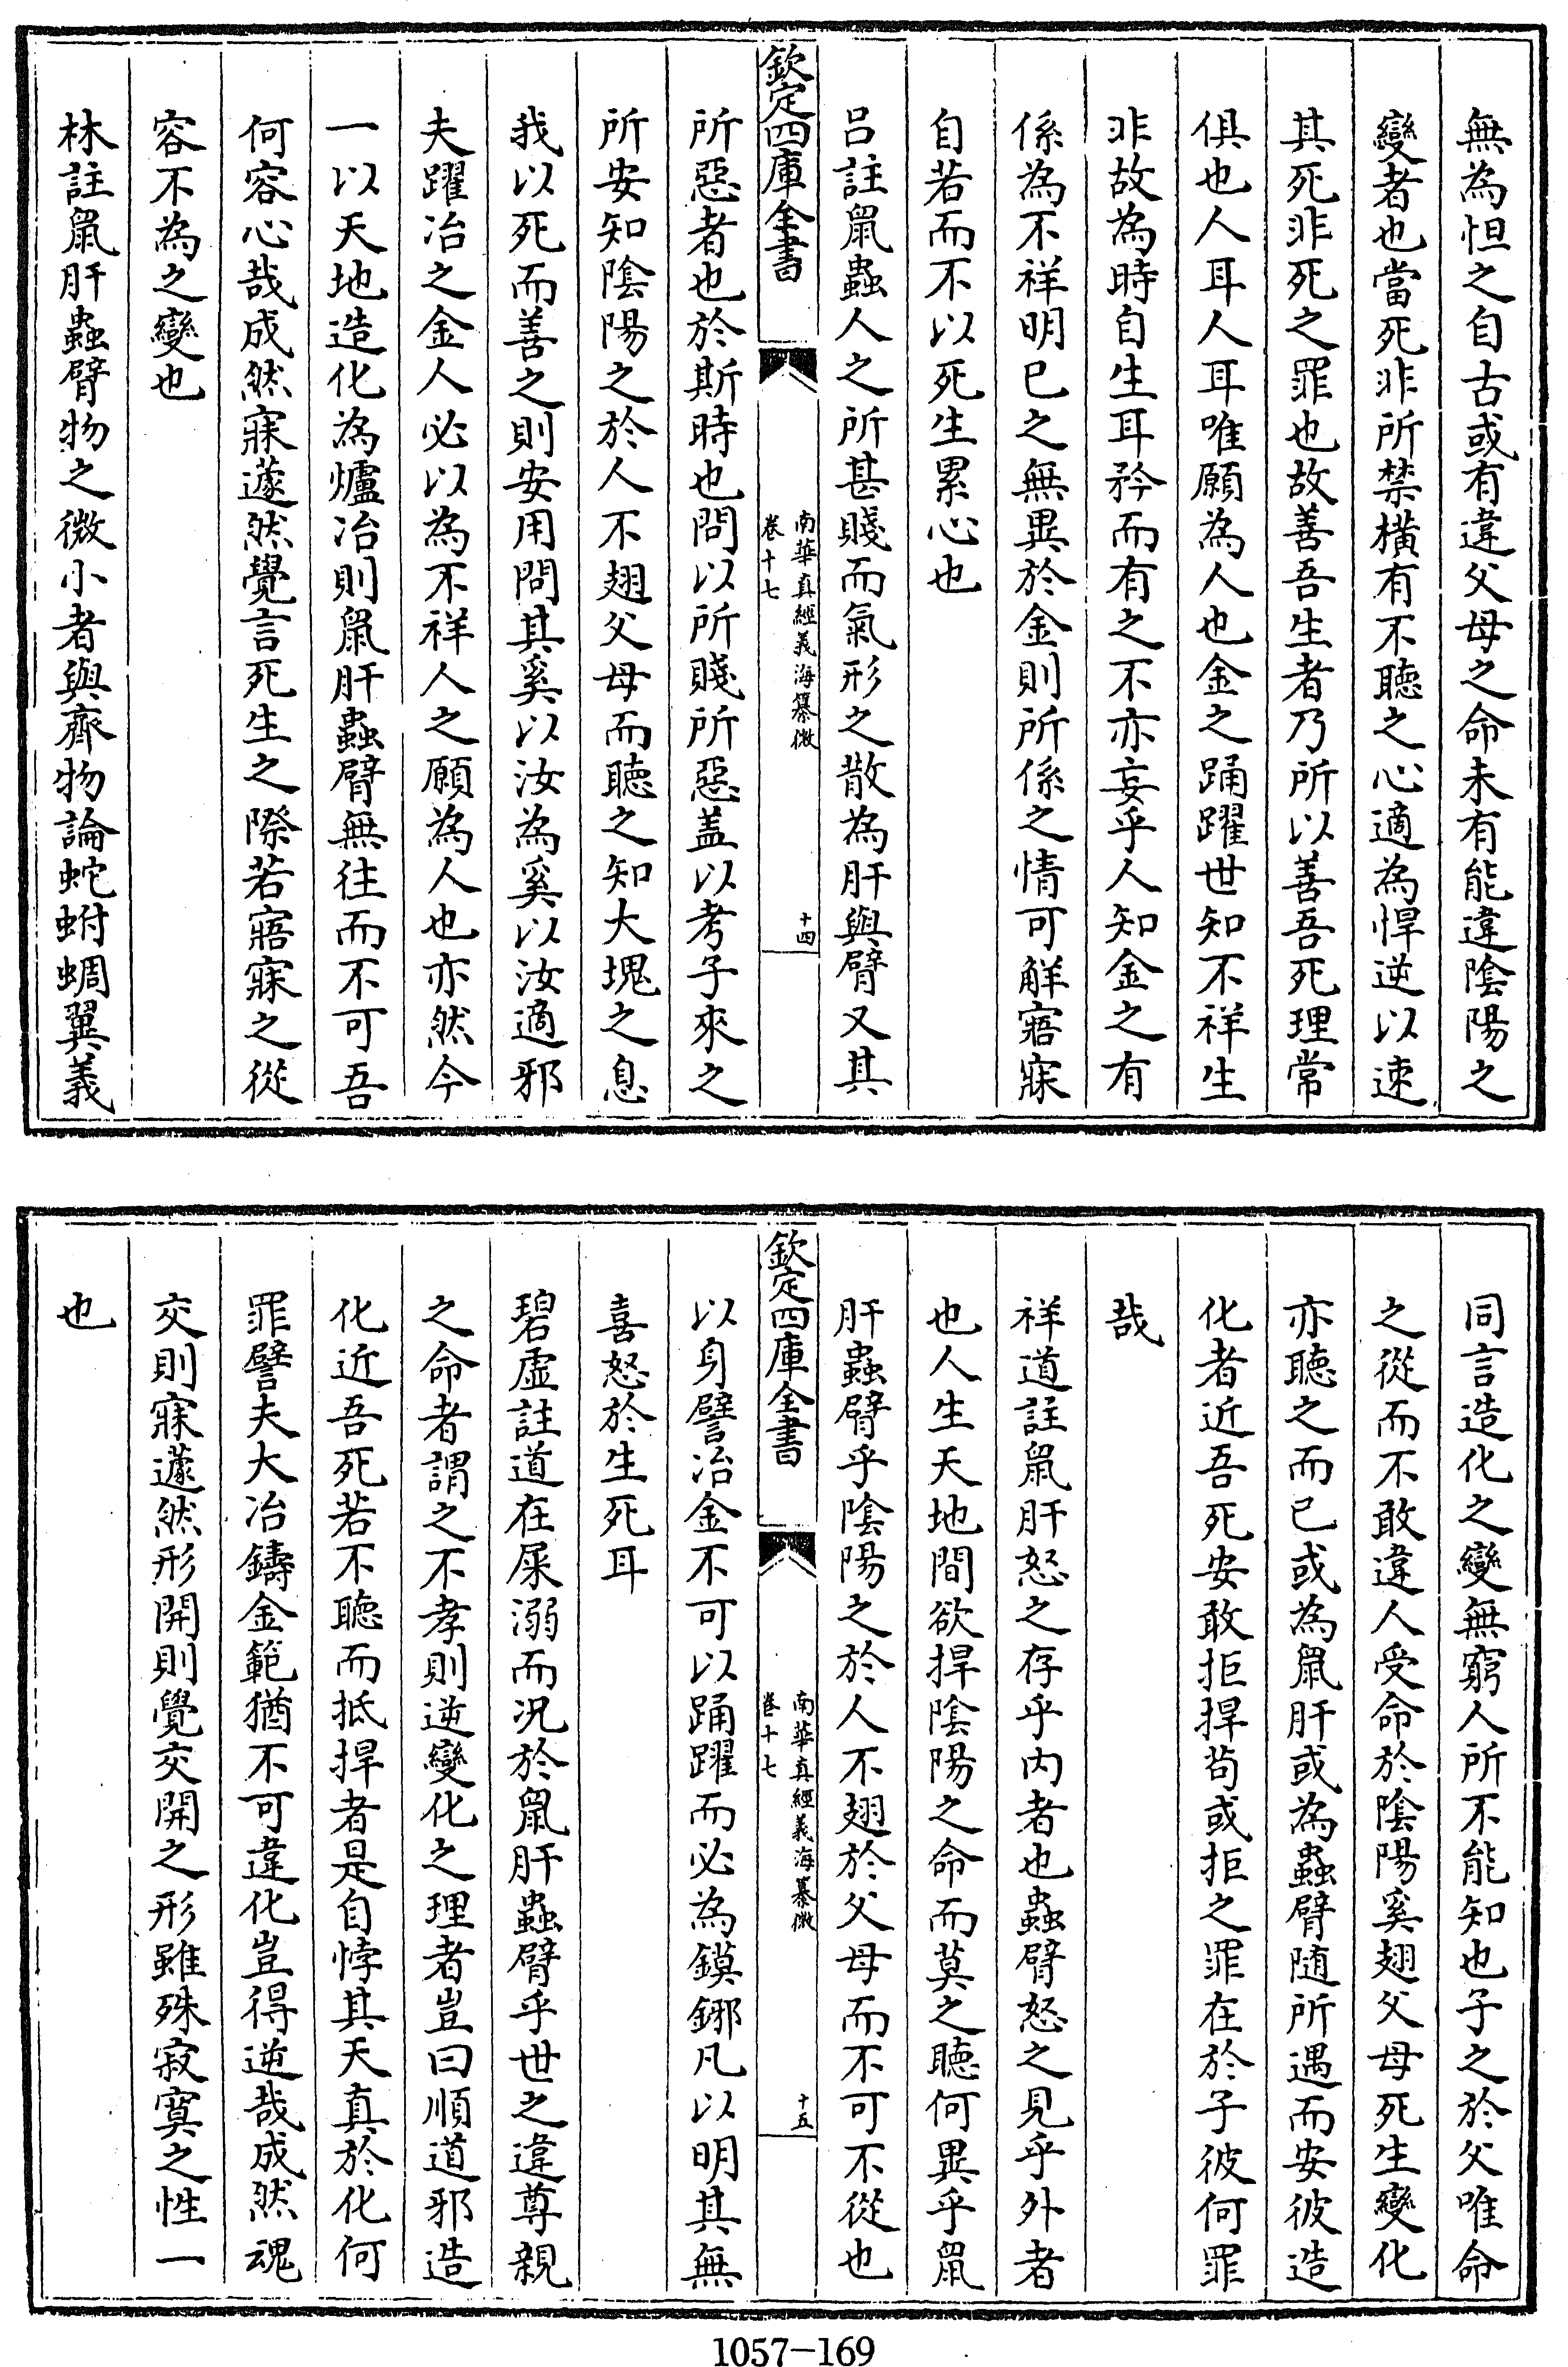 無為怛之自古或有違父母之命未有能違陰陽之
變者也當死非所禁橫有不聽之心適為悍逆以速
其死非死之罪也故善吾生者乃所以善吾死理常
俱也人耳人耳唯願為人也金之踊躍世知不祥生
非故為時自生耳矜而有之不亦妄乎人知金之有
係為不祥明已之無異於金則所係之情可解寤寐
自若而不以死生累心也
呂註鼠蟲人之所甚賤而氣形之散為肝與臂又其
欽定四庫全書
南華真經義海纂微
卷十七
十四
所惡者也於斯時也問以所賤所惡盖以考子來之
所安知陰陽之於人不翅父母而聽之知大塊之息
我以死而善之則安用問其奚以汝為奚以汝適邪
夫躍冶之金人必以為不祥人之願為人也亦然今
一以天地造化為爐冶則鼠肝蟲臂無往而不可吾
何容心哉成然寐蘧然覺言死生之際若寤寐之從
容不為之變也
林註鼠肝蟲臂物之微小者與齊物論蛇蚹蜩翼義
同言造化之變無窮人所不能知也子之於父唯命
之從而不敢違人受命於陰陽奚翅父母死生變化
亦聽之而已或為鼠肝或為蟲臂隨所遇而安彼造
化者近吾死安敢拒捍茍或拒之罪在於子彼何罪
哉
祥道註鼠肝怒之存乎内者也蟲臂怒之見乎外者
也人生天地間欲捍陰陽之命而莫之聽何異乎鼠
肝蟲臂乎陰陽之於人不翅於父母而不可不從也
欽定四庫全書
南華真經義海纂微
卷十七
十五
以身譬冶金不可以踊躍而必為鏌鋣凡以明其無
喜怒於生死耳
碧虛註道在屎溺而况於鼠肝蟲臂乎世之違尊親
之命者謂之不孝則逆變化之理者豈曰順道邪造
化近吾死若不聽而抵捍者是自悖其天真於化何
罪譬夫大冶鑄金範猶不可違化豈得逆哉成然魂
交則寐蘧然形開則覺交開之形雖殊寂寞之性一
也
1057-169